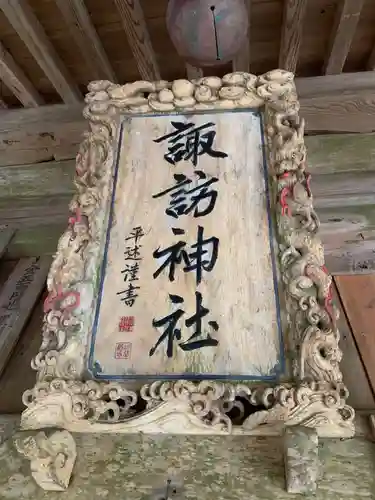 諏訪神社
平述謹書